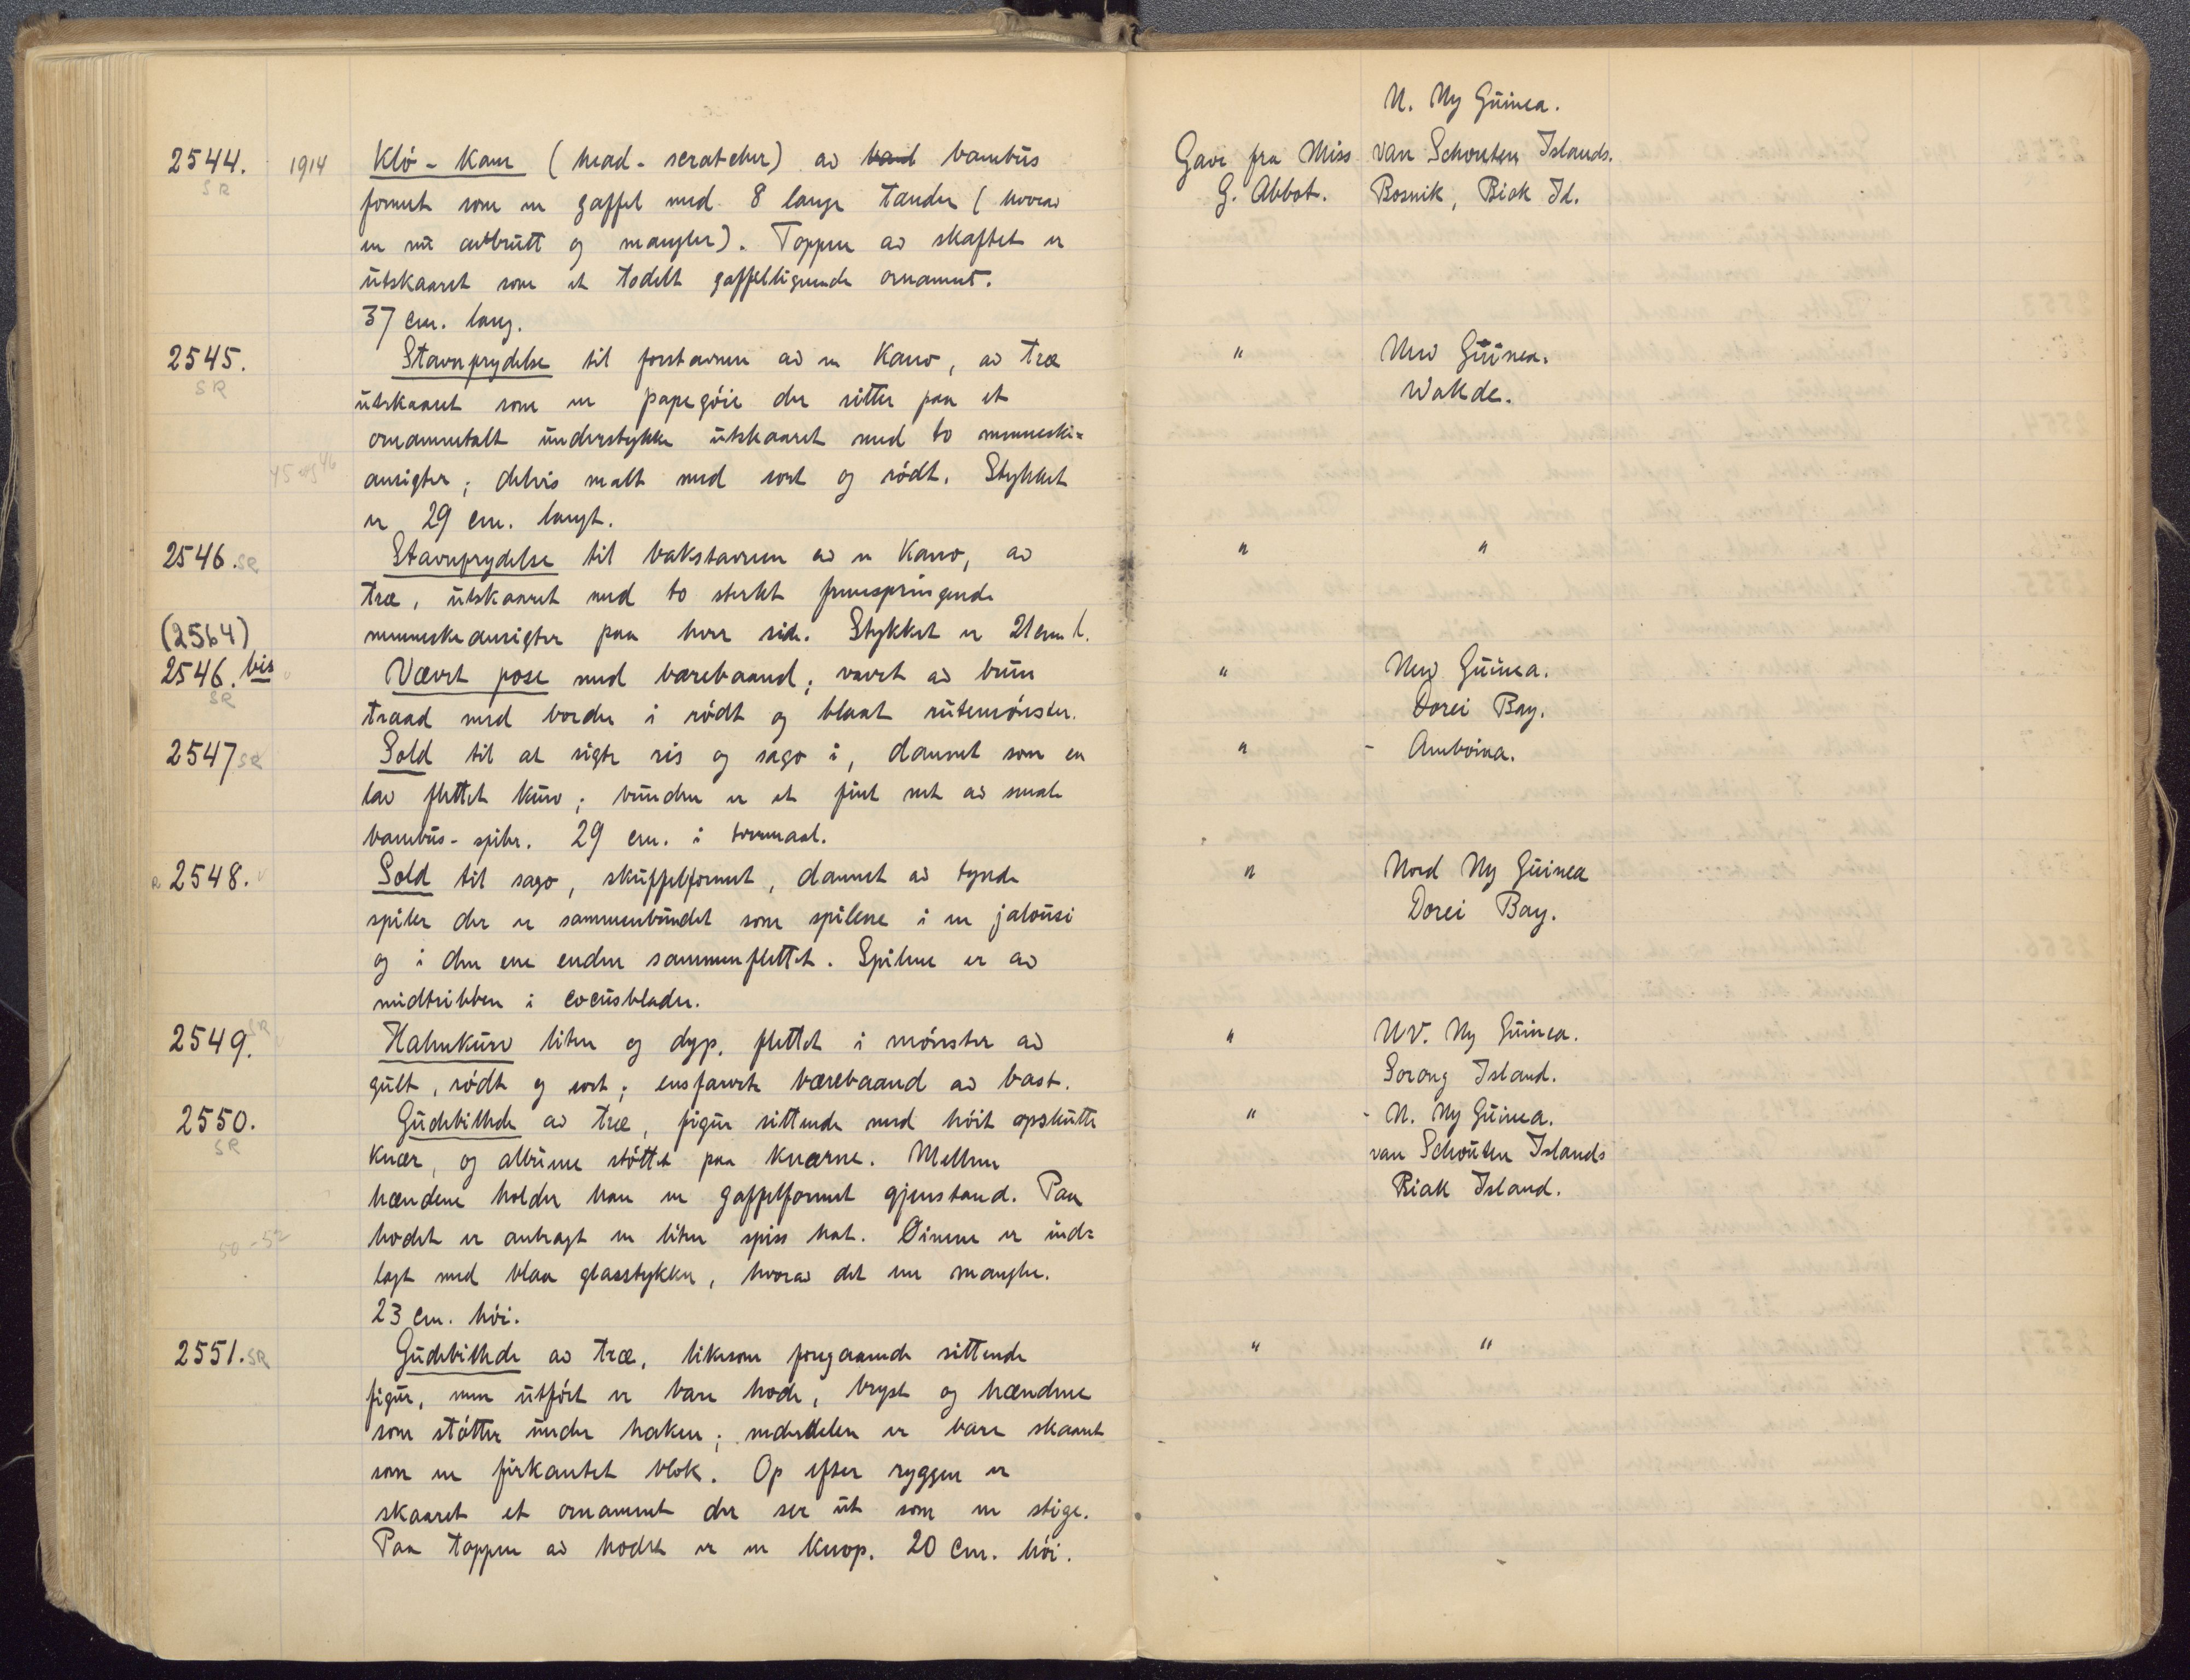 N. Ny Guinea.
2544. 1914 Klö-Kam (head-scratcher) av band bambus Gave fra Miss van Schouten Islands.
SR formet som en gaffel med 8 lange tænder (hvorav G. Abbot. Bosnik, Biak Id.
en nu avbrutt og mangler). Toppen av skaftet er
utskaaret som et todelt gaffellignende ornament.
37 cm. lang.
2545. Stavnprydelse til forstavnen av en Kano, av træ " New Guinea.
SR utskaaret som en papegöie der sitter paa et Wakde.
ornamentalt understykke utskaaret med to menneske=
45 og 46 ansigter; delvis malt med sort og rödt. Stykket
er 29 cm. langt.
2546. SR Stavnprydelse til bakstavnen av en Kano, av " "
træ, utskaaret med to sterkt fremspringende
(2564) menneskeansigter paa hver side. Stykket er 21 cm l.
2546. bis Vævet pose med bærebaand; vævet av brun " New Guinea.
SR traad med border i rödt og blaat rutemönster. Dorei Bay.
2547 SR Sold til at sigte ris og sago i, dannet som en " - Amboina.
lav flettet kurv; bunden er et fint net av smale
bambus-spiler. 29 cm. i tvermaal.
R 2548. Sold til sago, skuffelformet, dannet av tynde " Nord Ny Guinea
spiler der er sammenbundet som spilene i en jalousi Dorei Bay.
og i den ene enden sammenflettet. Spilene er av
midtribben i cocusblader.
2549. SR Halmkurv liten og dyp, flettet i mönster av " NV. Ny Guinea.
gult, rödt og sort; ensfarvet bærebaand av bast. Sorong Island.
2550. Gudebillede av træ, figur sittende med höit opskutte " - N. Ny Guinea.
SR Knær, og albuene stöttet paa knærne. Mellem van Schouten Islands
hændene holder han en gaffelformet gjenstand. Paa Biak Island.
50-52 hodet er anbragt en liten spiss hat. Öinene er ind=
lagt med blaa glasstykker, hvorav det ene mangler.
23 cm. höi.
2551. SR Gudebillede av træ, likesom foregaaende sittende " "
figur, men utfört er bare hode, bryst og hændene
som stötter under haken; nederdelen er bare skaaret
som en firkantet blok. Op efter ryggen er
skaaret et ornament der ser ut som en stige.
Paa toppen av hodet er en knop. 20 cm. höi.